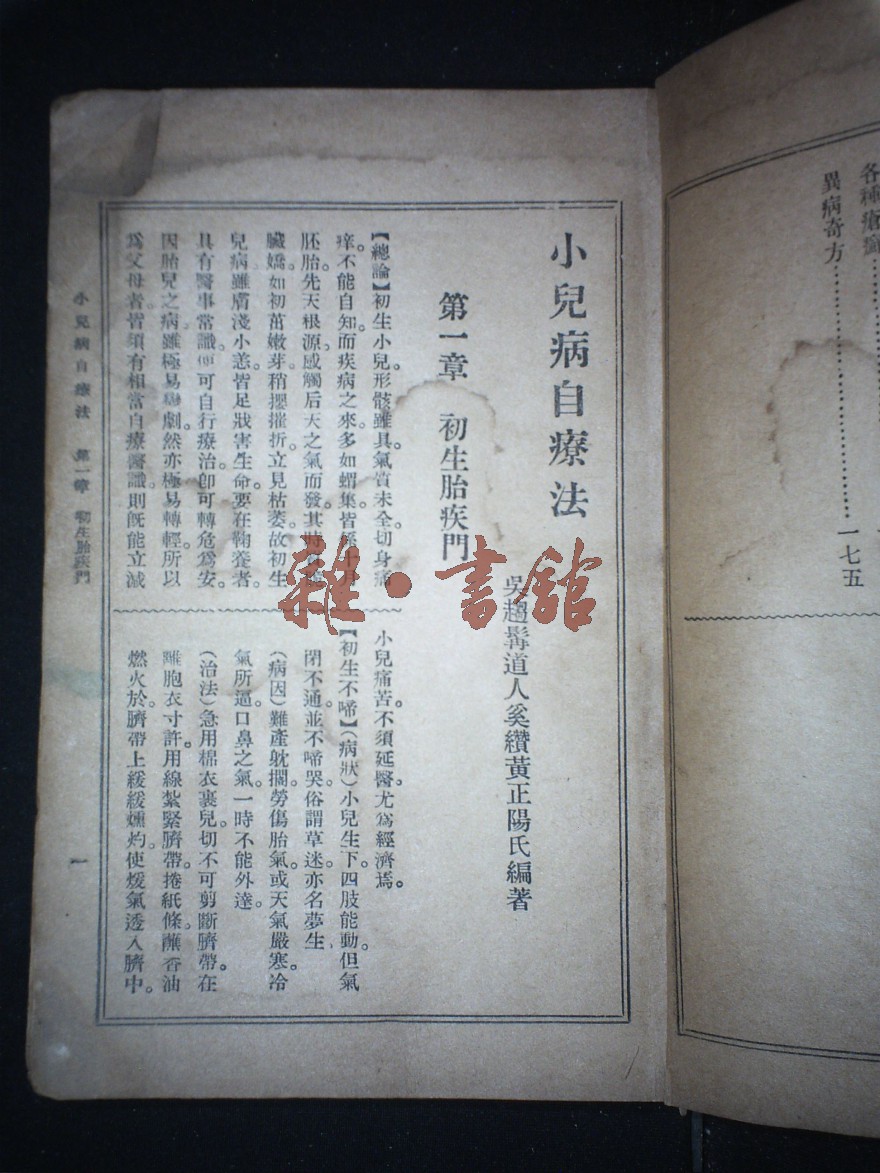 各種瘡
異病奇方……………一七五
小兒病自療法
吳趨髯道人奚纘黃正陽氏編著
第一章 初生胎疾門
【總論】初生小兒形骸雖具。氣質未全。切身痛
癢。不能自知。而疾病之來。多如蝟集。皆係十月
胚胎先天根源。感觸后天之氣而發。其時
臟嬌。如初茁嫩芽。稍攖摧折。立見枯萎。故初生
兒病。雖膚淺小恙。皆足戕害生命。要在鞠養者。
具有醫事常識。便可自行療治。卽可轉危爲安。
因胎兒之病。雖極易變劇。然亦極易轉輕。所以
爲父母者。皆須有相當自療醫識。則旣能立減
小兒痛苦。不須延醫。尤爲經濟焉。
【初生不啼】（病狀）小兒生下。四肢能動。但氣
閉不通。並不啼哭。俗謂草迷。亦名夢生
（病因）難產躭擱。勞傷胎氣。或天氣嚴寒。冷
氣所逼。口鼻之氣。一時不能外達。
（治法）急用棉衣裹兒。切不可剪斷臍帶。在
離胞衣寸許。用線紮緊臍帶。捲紙條。蘸香油
燃火。於臍帶上緩緩燻灼。使煖氣透入臍中。
小兒病自療法 第一章 初生胎疾門
一
雜·書館